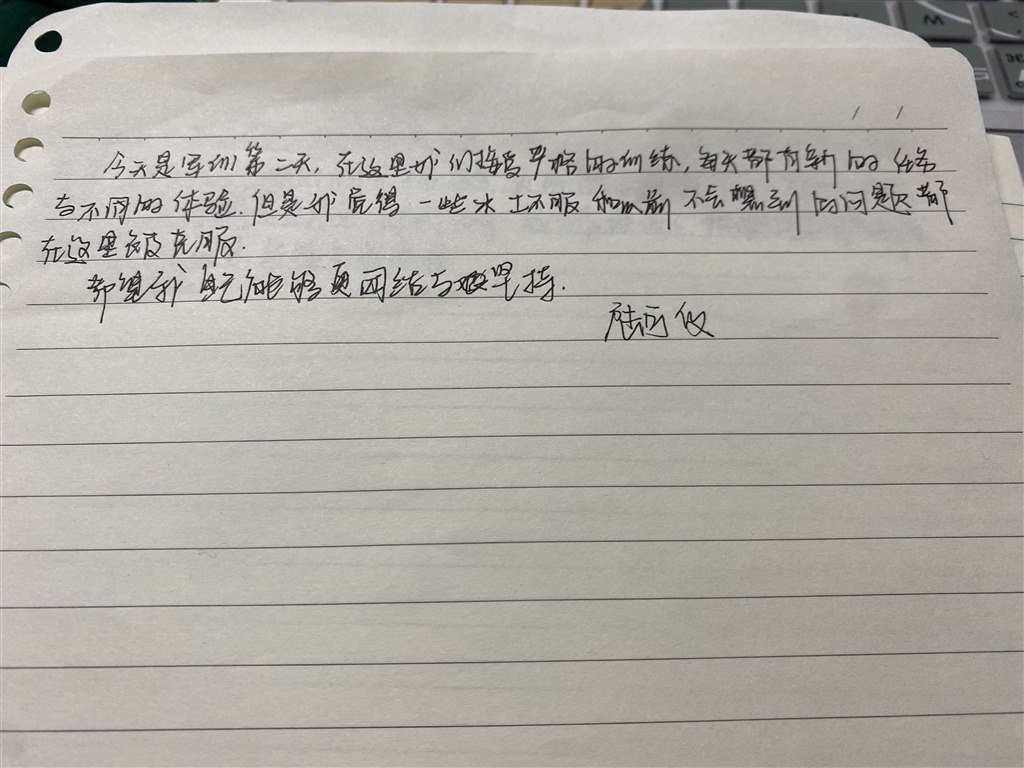 今天是军训第二天，在这里我们接受严格的训练，每天都有新的任务
与不同的体验．但是我觉得一些水土不服和以前不会想到的问题都
在这里被克服．
希望我自己能够更团结与坚持．
陆可仪